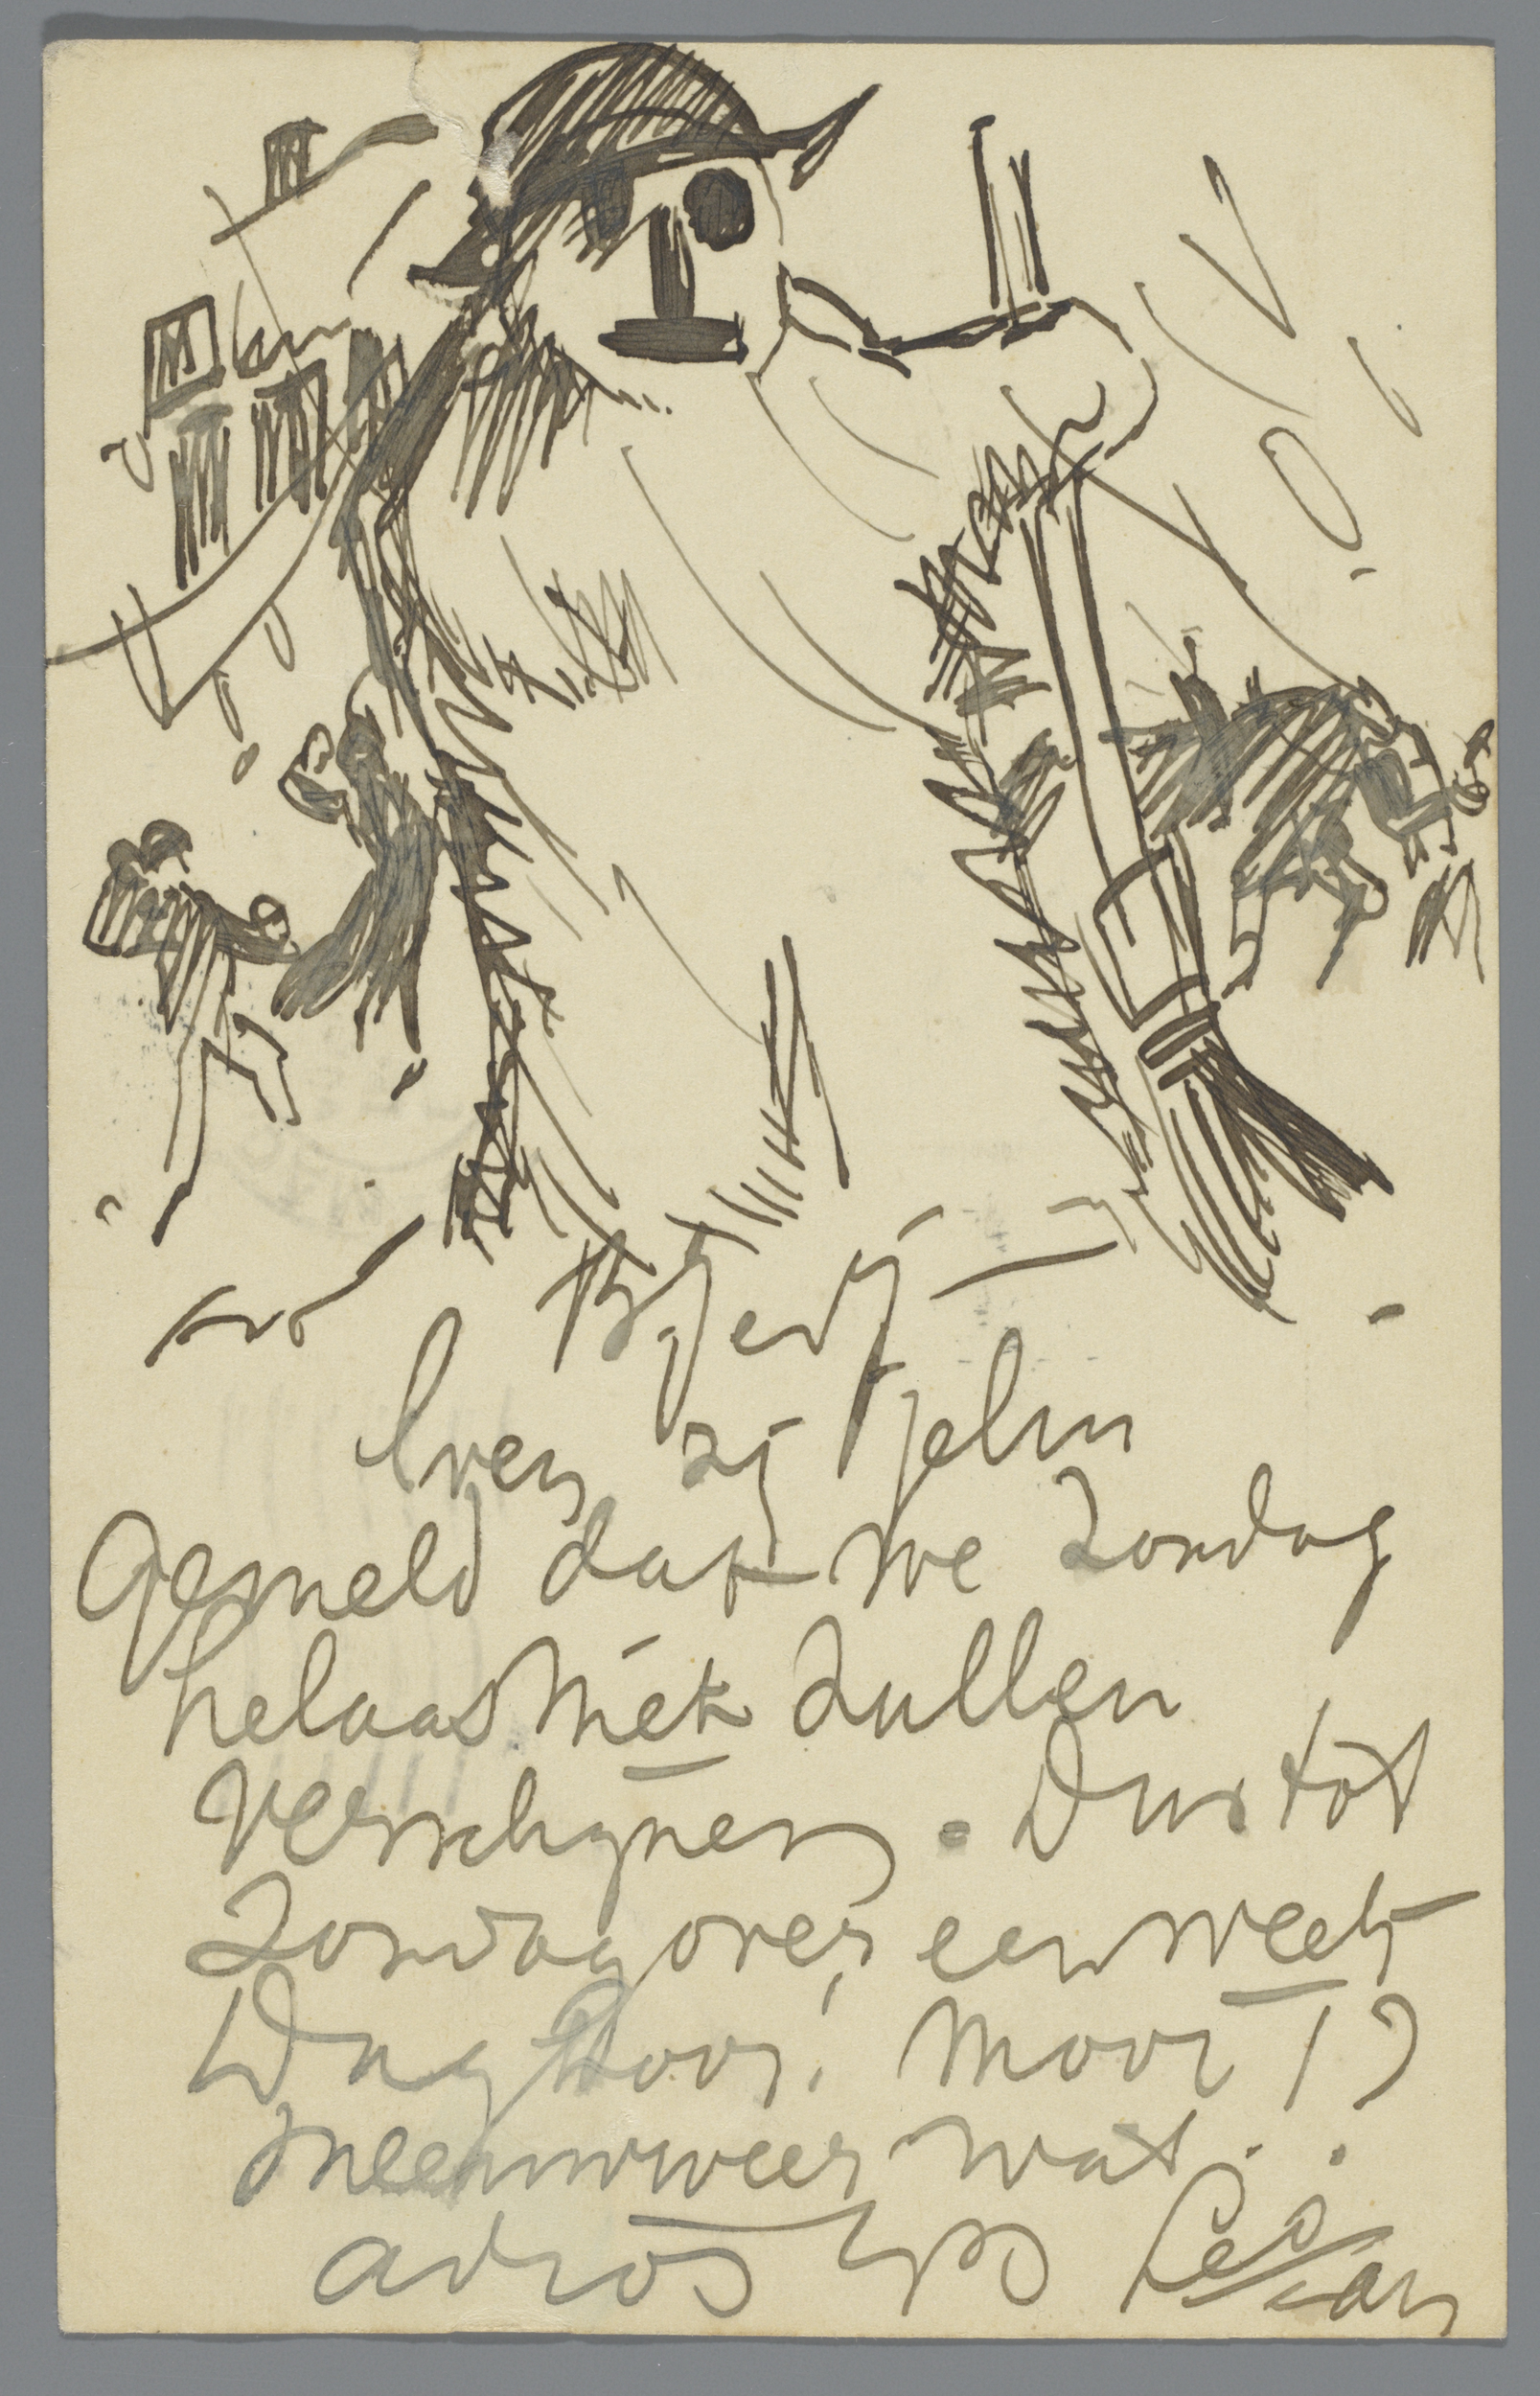 Bijerij -
brey zij
Gemeld dat we Zondag
helaas niet zullen
verschynen. Dus tot
Zondag over een week
Dag hoor! Mooi !?
weer wat..
adios Leo